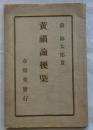 森林太郎著
黃禍論梗槩
春陽堂發行